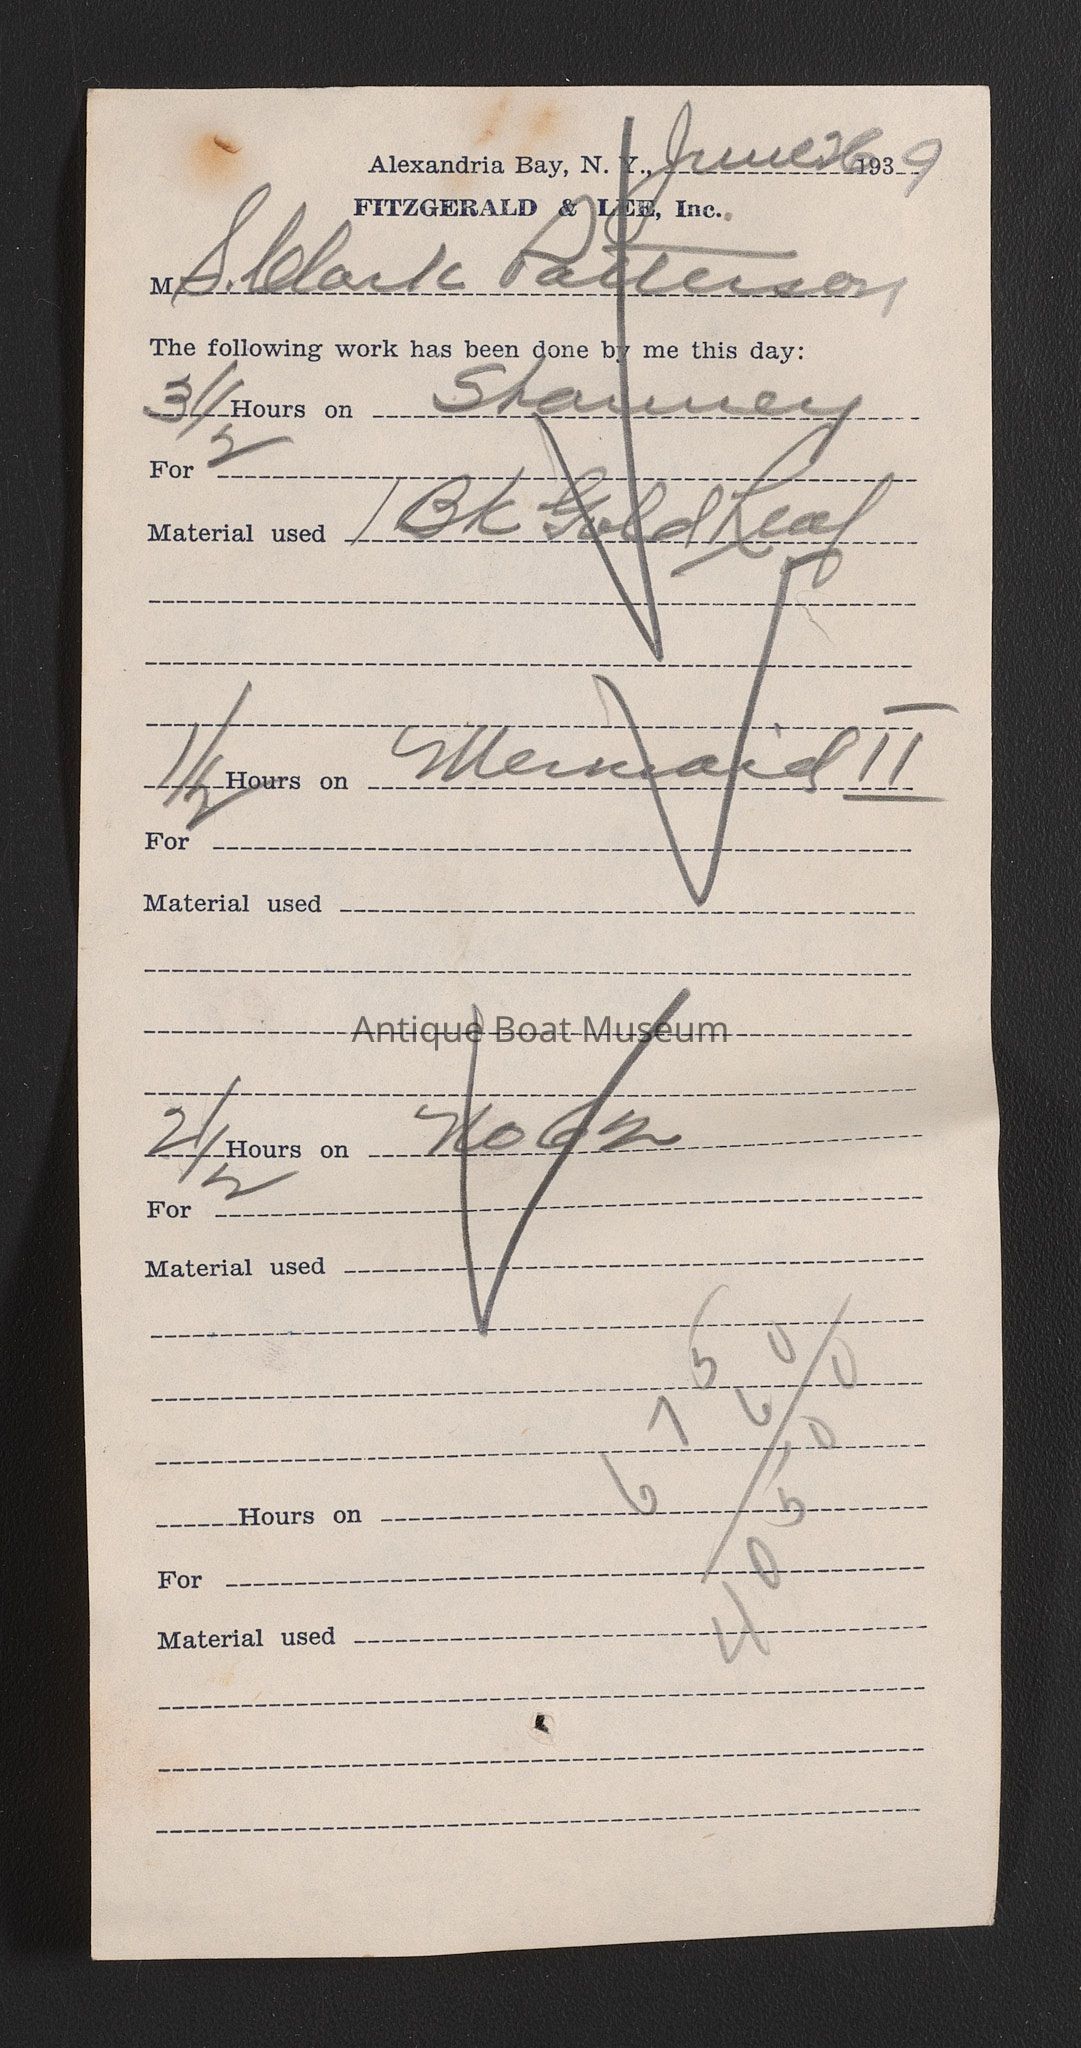 Alexandria Bay, N. Y., June 26 1939
FITZGERALD & LEE, Inc.
M S. Clark Patterson
The following work has been done by me this day:
3 1/2 Hours on
For
Material used 1 Bk Gold Leaf
1 1/2 Hours on Mermaid II
For
Material used
Antique Boat Museum
2 1/2 Hours on No 62
For
Material used
Hours on
For
Material used